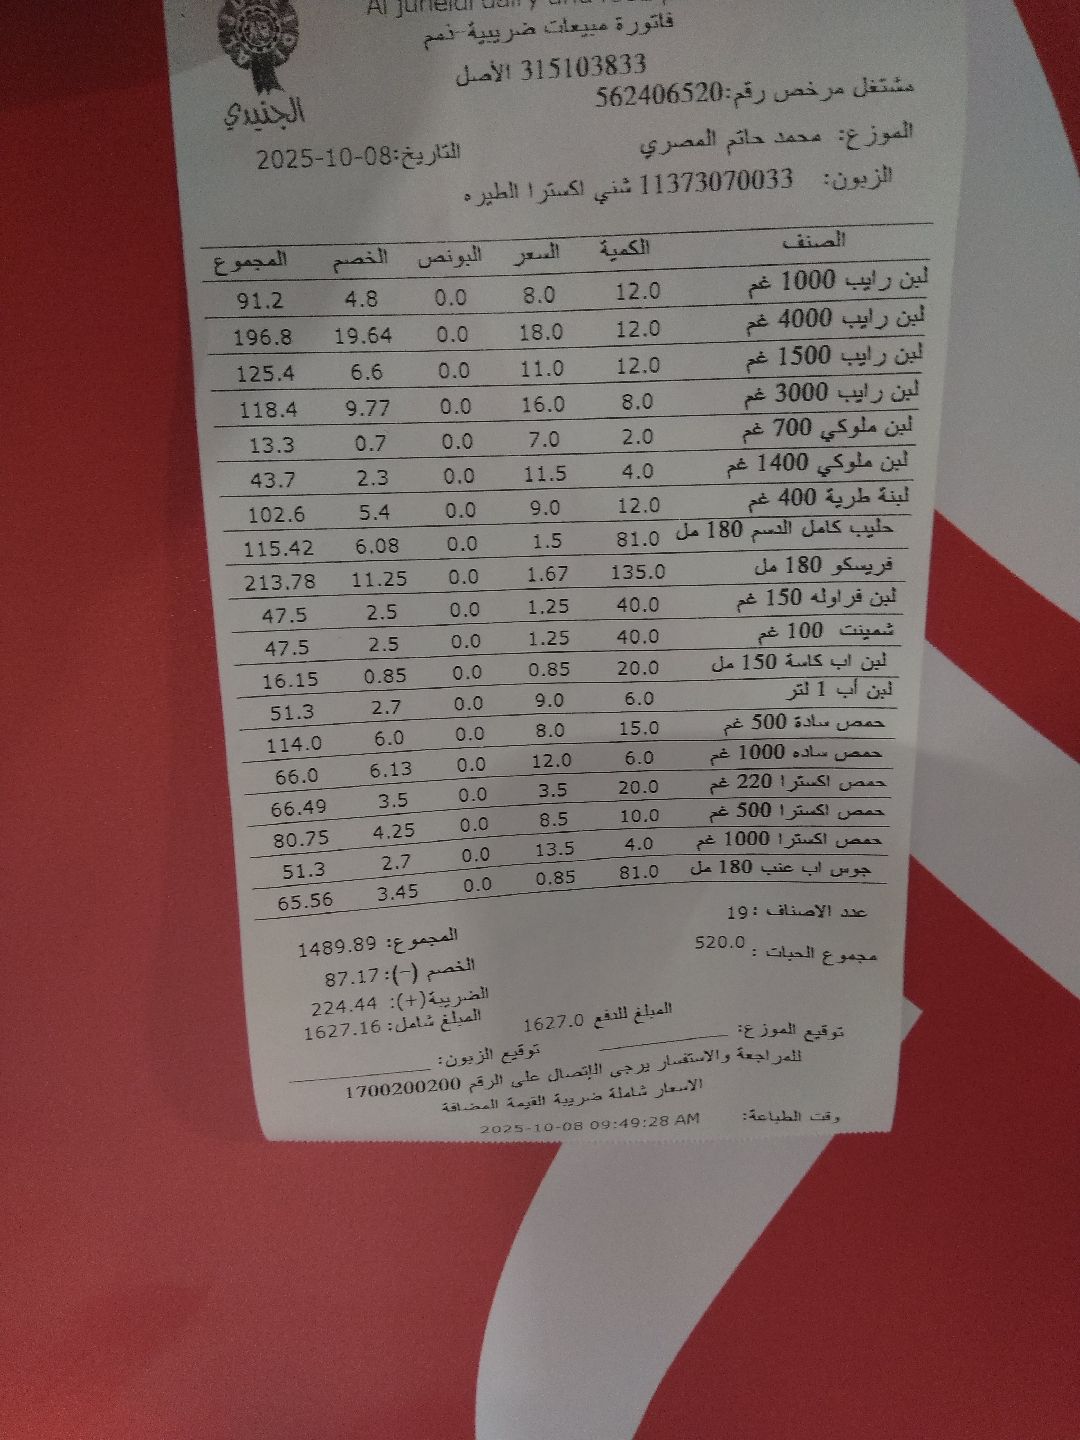 Al Juneidi dairy and
فاتورة مبيعات ضريبية-ذمم
315103833 الأصل
مشتغل مرخص رقم:562406520
الجنيدي
الموزع: محمد حاتم المصري
التاريخ:2025-10-08
الزبون: 11373070033 شني اكسترا الطيره
الصنف الكمية السعر البونص الخصم المجموع
لبن رايب 1000 غم 12.0 8.0 0.0 4.8 91.2
لبن رايب 4000 غم 12.0 18.0 0.0 19.64 196.8
لبن رايب 1500 غم 12.0 11.0 0.0 6.6 125.4
لبن رايب 3000 غم 8.0 16.0 0.0 9.77 118.4
لبن ملوكي 700 غم 2.0 7.0 0.0 0.7 13.3
لبن ملوكي 1400 غم 4.0 11.5 0.0 2.3 43.7
لبنة طرية 400 غم 12.0 9.0 0.0 5.4 102.6
حليب كامل الدسم 180 مل 81.0 1.5 0.0 6.08 115.42
فريسكو 180 مل 135.0 1.67 0.0 11.25 213.78
لبن فراوله 150 غم 40.0 1.25 0.0 2.5 47.5
شمينت 100 غم 40.0 1.25 0.0 2.5 47.5
لبن اب كاسة 150 مل 20.0 0.85 0.0 0.85 16.15
لبن أب 1 لتر 6.0 9.0 0.0 2.7 51.3
حمص سادة 500 غم 15.0 8.0 0.0 6.0 114.0
حمص ساده 1000 غم 6.0 12.0 0.0 6.13 66.0
حمص اكسترا 220 غم 20.0 3.5 0.0 3.5 66.49
حمص اكسترا 500 غم 10.0 8.5 0.0 4.25 80.75
حمص اكسترا 1000 غم 4.0 13.5 0.0 2.7 51.3
جوس اب عنب 180 مل 81.0 0.85 0.0 3.45 65.56
عدد الاصناف :19
المجموع: 1489.89
مجموع الحبات : 520.0
الخصم (-): 87.17
الضريبة(+): 224.44
المبلغ شامل: 1627.16
المبلغ للدفع 1627.0
توقيع الموزع:
توقيع الزبون:
للمراجعة والاستفسار يرجى الإتصال على الرقم 1700200200
الاسعار شاملة ضريبة القيمة المضافة
وقت الطباعة: 2025-10-08 09:49:28 AM